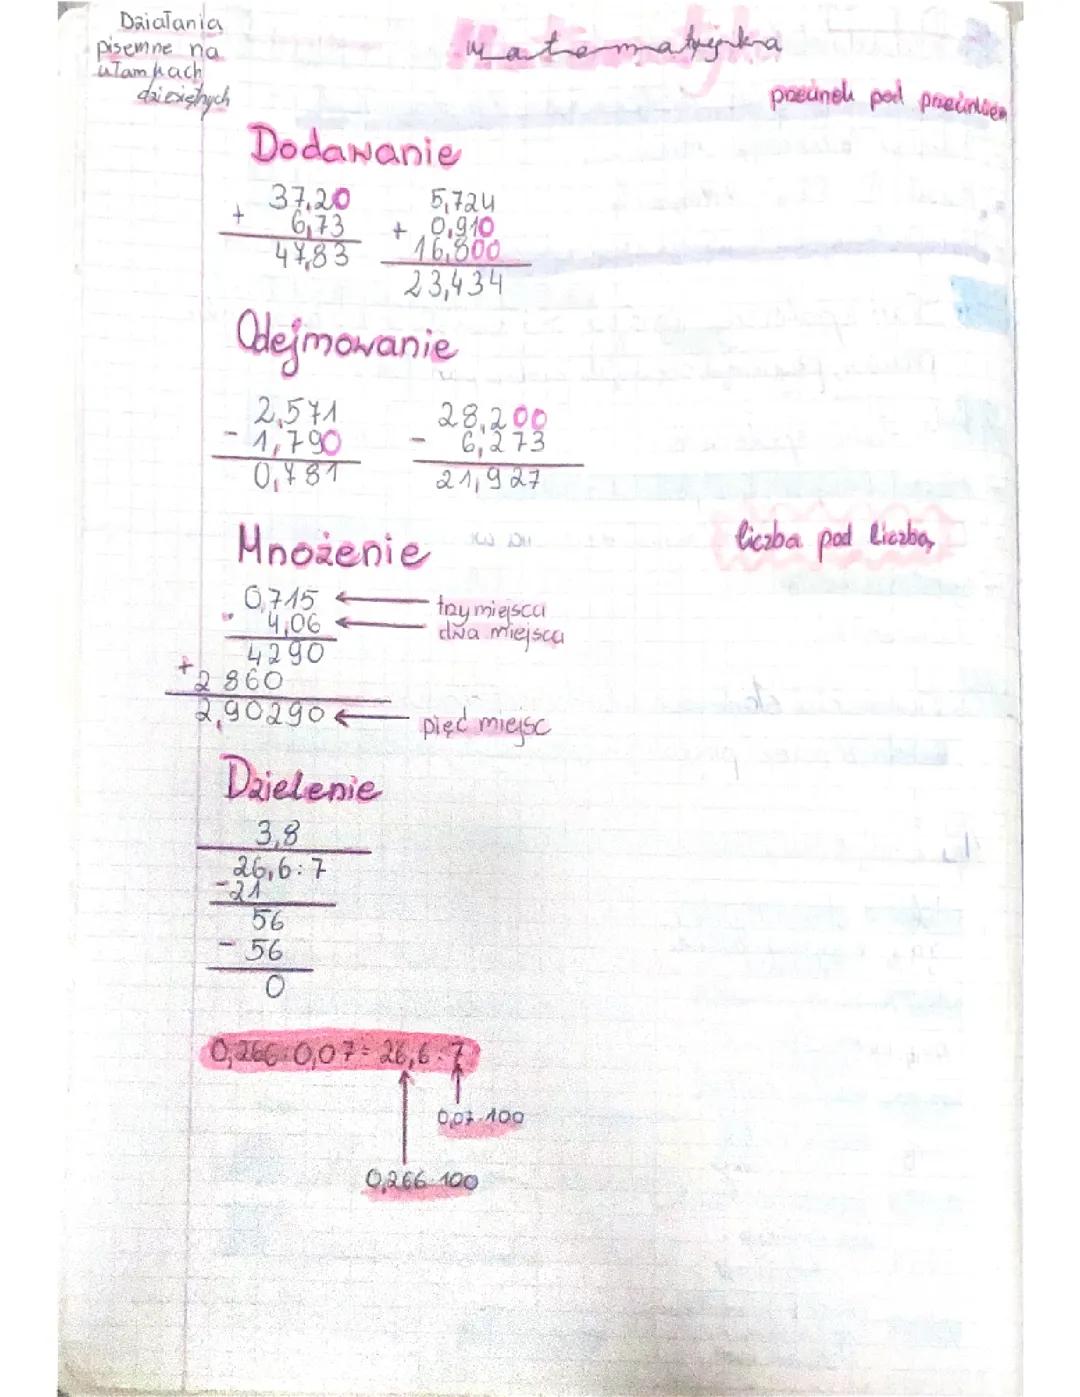 Działania
pisemne na
ułamkach
dziesiętnych
Matematyka
przecinek pod przecinkiem
Dodawanie
37,20
+ 6,73
47,83
5,724
+ 0,910
16,800
23,434
Odejmowanie
2,571
- 1,790
0,781
28,200
- 6,273
21,927
Mnożenie
liczba pod liczbą
0,715 ← trzy miejsca
· 4,06 ← dwa miejsca
4290
+ 2860
2,90290 ← pięć miejsc
Dzielenie
3,8
26,6:7
-21
56
- 56
0
0,266:0,07=26,6:7
0,07·100
0,266·100